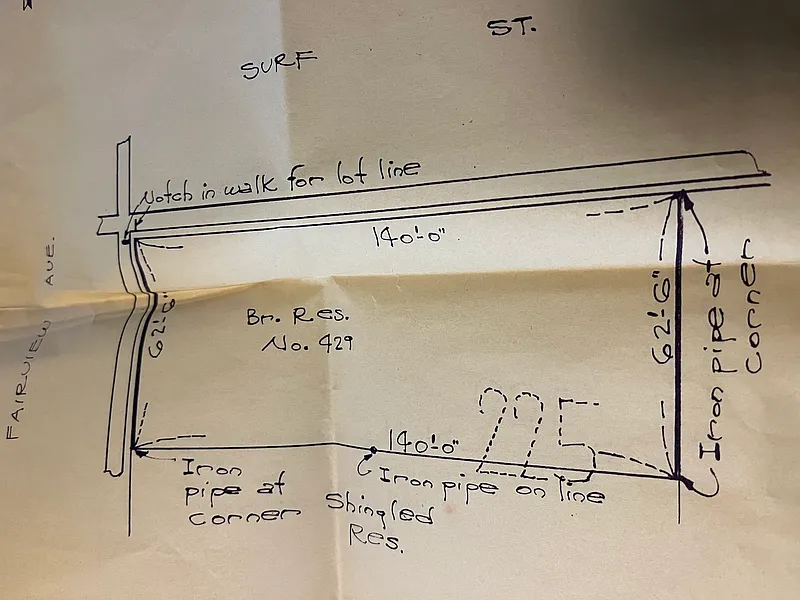 ST.
SURF
Notch in walk for lot line
140'-0"
FAIRVIEW AVE.
62'-6"
Br. Res.
No. 429
62'-6"
Iron pipe at
corner
225
140'-0"
Iron pipe on line
Iron
pipe at
corner
Shingled
Res.